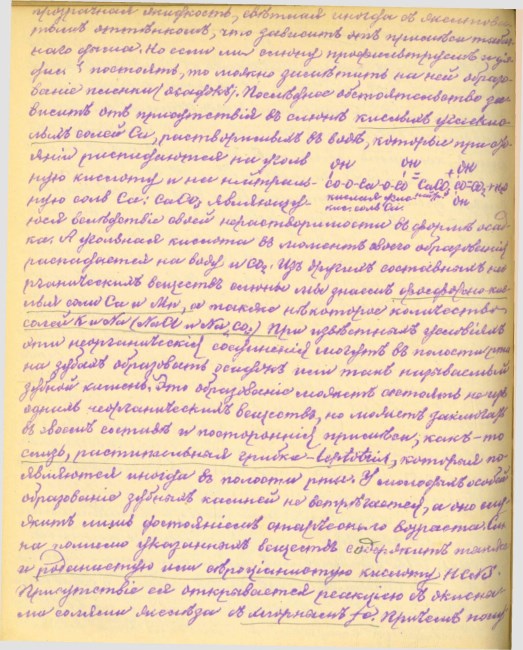 прозрачная жидкость, свѣтлая иногда съ желтоватымъ
оттѣнкомъ, что зависитъ отъ примѣси
Но если мы слюну профильтруемъ и
постоять, то можно замѣтить на ней образо-
ваніе пленки (осадокъ). Послѣднее обстоятельство за-
виситъ отъ присутствія въ слюнѣ кислыхъ углекис-
лыхъ солей Ca, растворимыхъ въ водѣ, которые при
распадаются на уголь-
ную кислоту и на нейтраль-
ную соль Ca: CaCO3 являющую-
OH OH OH
CO-O-Ca-O-CO = CaCO3 + CO = CO2 + H2O
OH
ся вслѣдствіе своей нерастворимости въ формѣ осад-
ка. А угольная кислота въ моментъ своего образованія
распадается на воду и CO2. Изъ другихъ составныхъ не-
органическихъ веществъ слюны мы знаемъ фосфорно-кис-
лыя соли Ca и Mn, а также нѣкоторое количество
солей K и Na (NaCl и Na2CO3) При извѣстныхъ условіяхъ
эти неорганическія соединенія могутъ въ полости рта
на зубахъ образовать осадокъ или такъ называемый
зубной камень. Это образованіе можетъ состоять изъ
однихъ неорганическихъ веществъ, но можетъ заключать
въ своемъ составѣ и посторонніе примѣси, какъ-то
слизь, растительная грибка - Leptotrix, которая по-
являются иногда въ полости рта. У молодыхъ особей
образованіе зубныхъ камней не встрѣчается, а оно слу-
житъ лишь достояніемъ старческаго возраста. Слю-
на помимо указанныхъ веществъ содержитъ также
и роданистую или сѣроціанистую кислоту HCNS.
Присутствіе ея открывается реакціею съ окисна-
ми солями желѣза съ хлорнымъ Fe. Причемъ